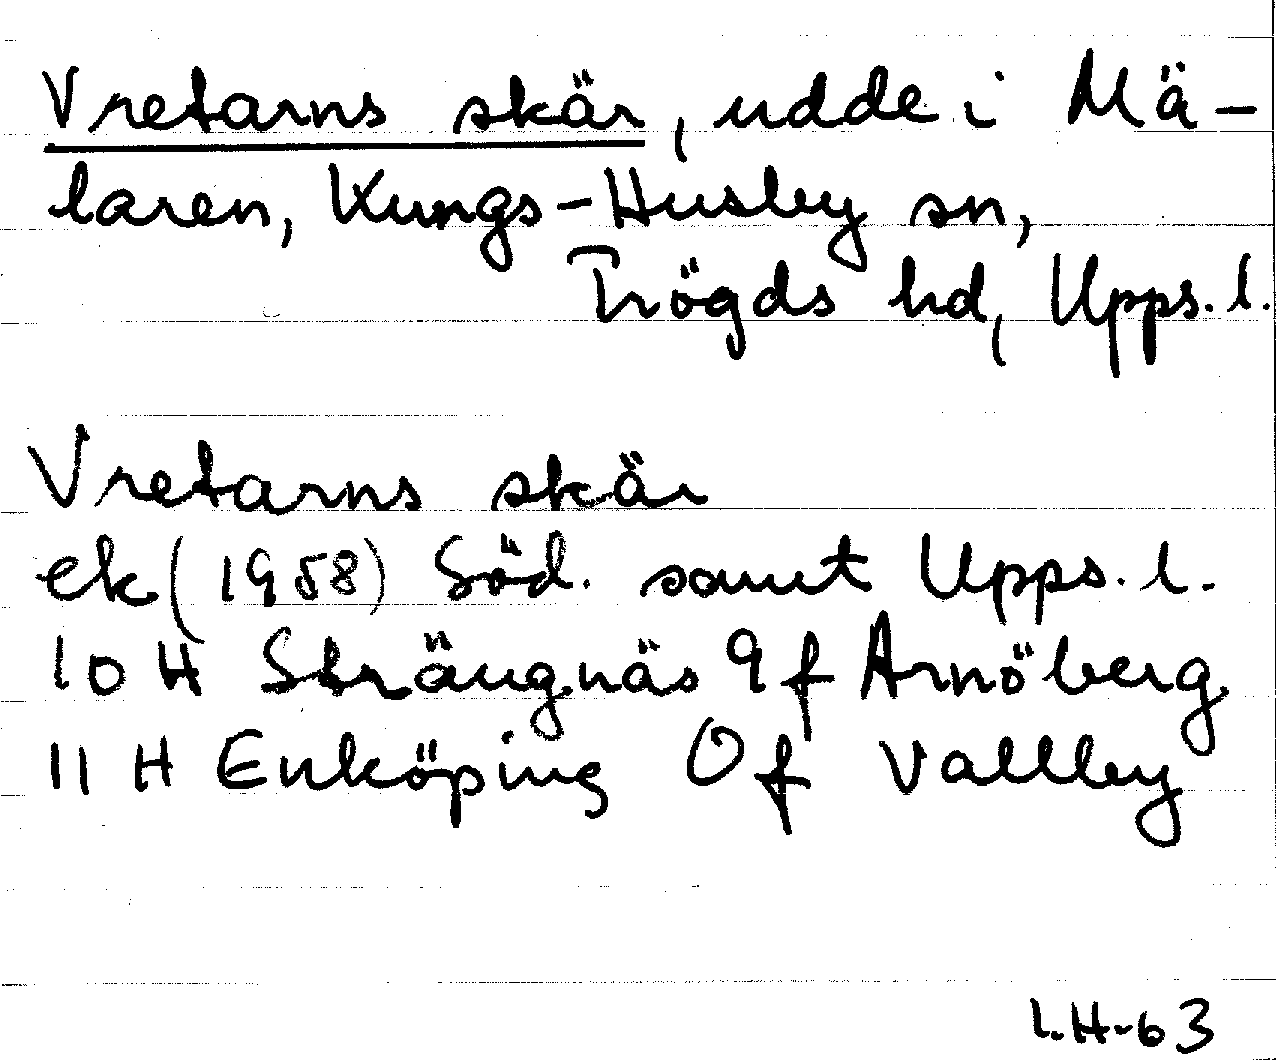 Vretarns skär, udde i Mä-
laren, Kungs-Husby sn,
Trögds hd, Upps. l.
Vretarns skär
ek (1958) Söd. samt Upps. l.
10 H Strängnäs 9 f Arnöberg
11 H Enköping 0 f Vallby
I.H-63